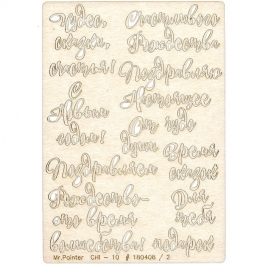 Чудес,
сказки,
счастья!
С
Новым
годом!
Поздравляем
Рождество-
это время
волшебства!
Счастливого
Рождества
Поздравляю
Настоящее
чудо
От
души
Время
сказок
Для
тебя
подарок
Mr.Pointer CHI - 10 # 180406 / 2